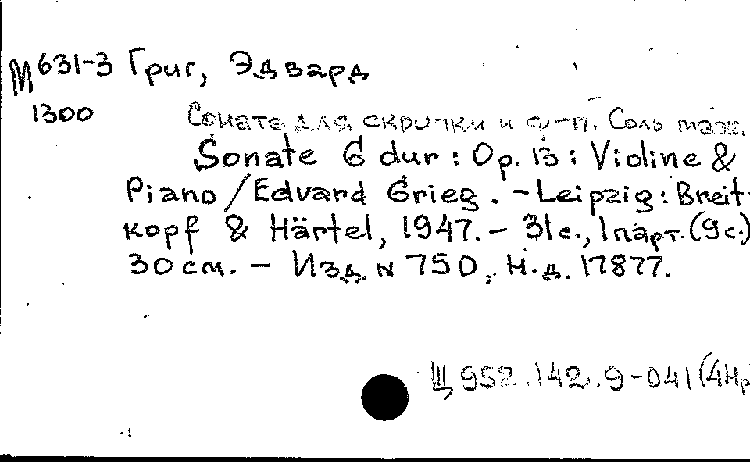 М631-3 Григ, Эдвард
1300
Соната для скрипки и ф-п. Соль маж.
Sonate G dur : Op. 13 : Violine &
Piano / Edvard Grieg. - Leipzig : Breit-
kopf & Härtel, 1947. - 31 с., 1 парт. (9 с.)
30 см. - Изд. N 750, Н.д. 17877.
Щ952.142.9-041(4Нр